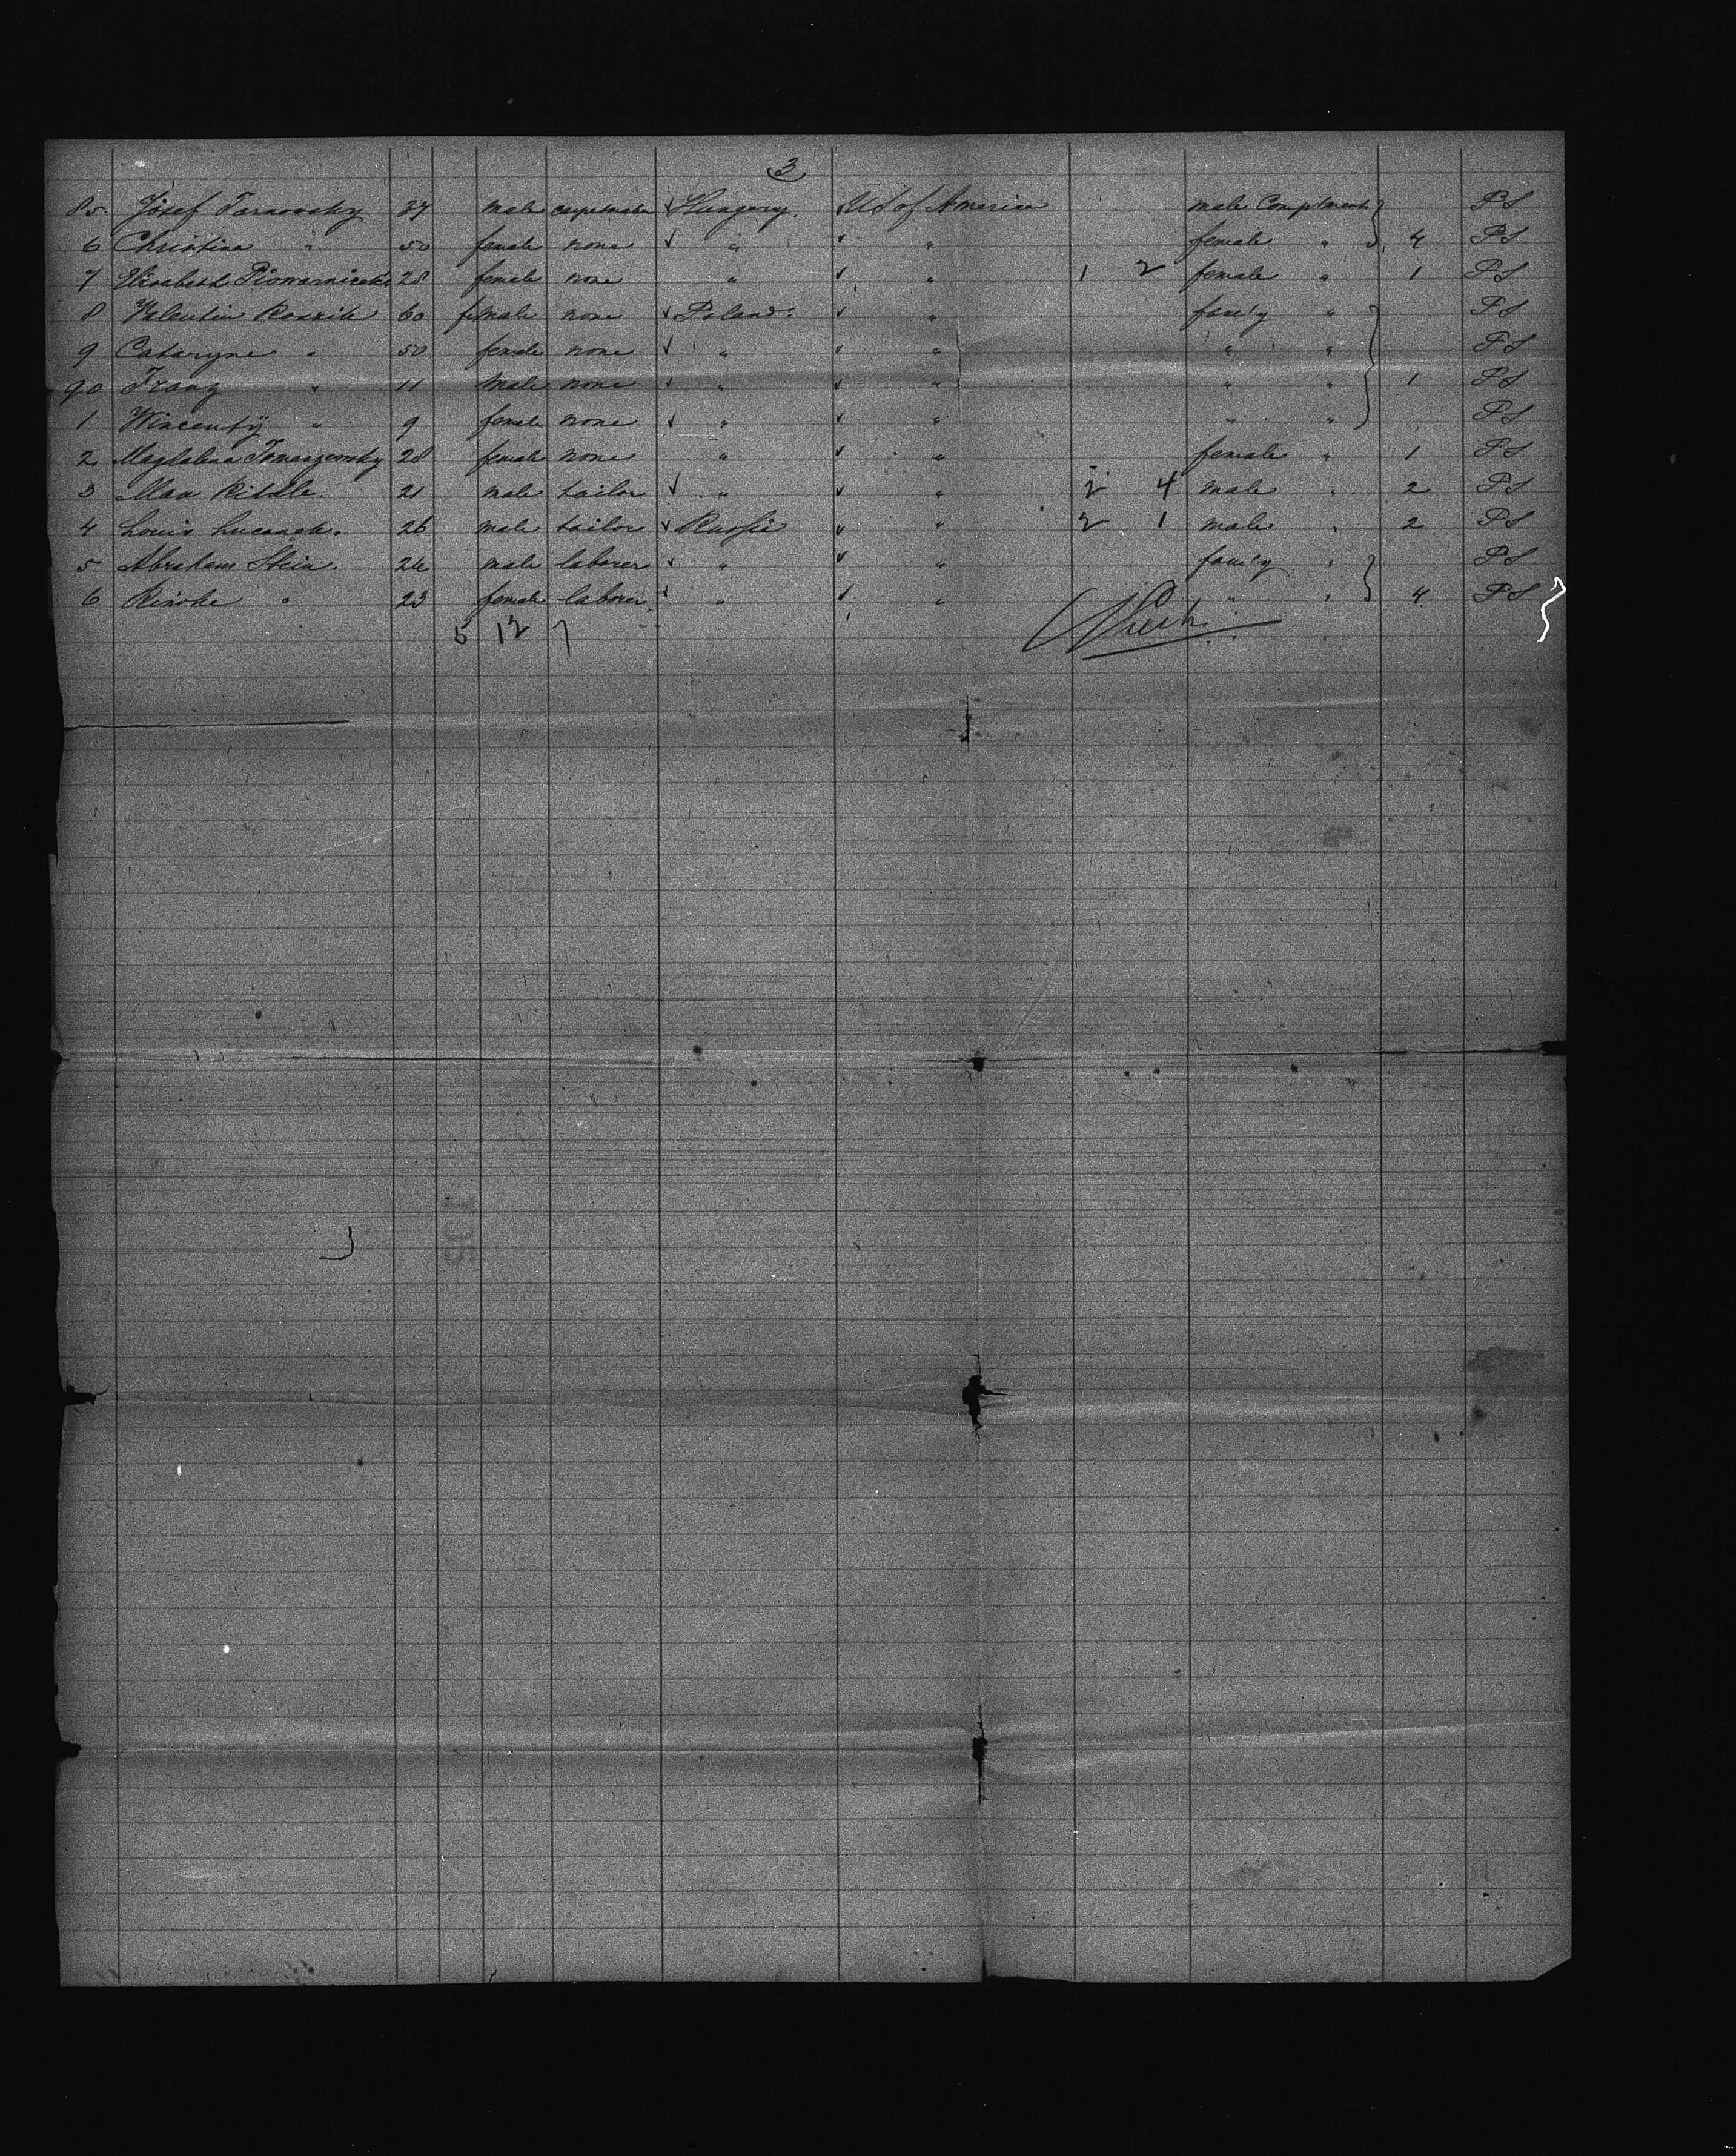 3
85. Jósef Tarnovsky 37 male carpetmaker Hungary. US of America male Compltment PS
6 Christina " 50 female none " " female " 4 PS
7 Elisabeth 28 female none " " 1 2 female " 1 PS
8 Valentin Roszik 60 female none Poland. " family " PS
9 Cataryne " 50 female none " " " " PS
90 Franz " 11 male none " " " " 1 PS
1 Wincentÿ " 9 female none " " " " PS
2 Magdalena Tomaszewsky 28 female none " " female " 1 PS
3 Max 21 male tailor " " 2 4 male " 2 PS
4 Louis 26 male tailor Russie " 2 1 male " 2 PS
5 Abraham Stein 24 male laborer " " family " PS
6 Riwke " 23 female laborer " " " " 4 PS
5 12 7